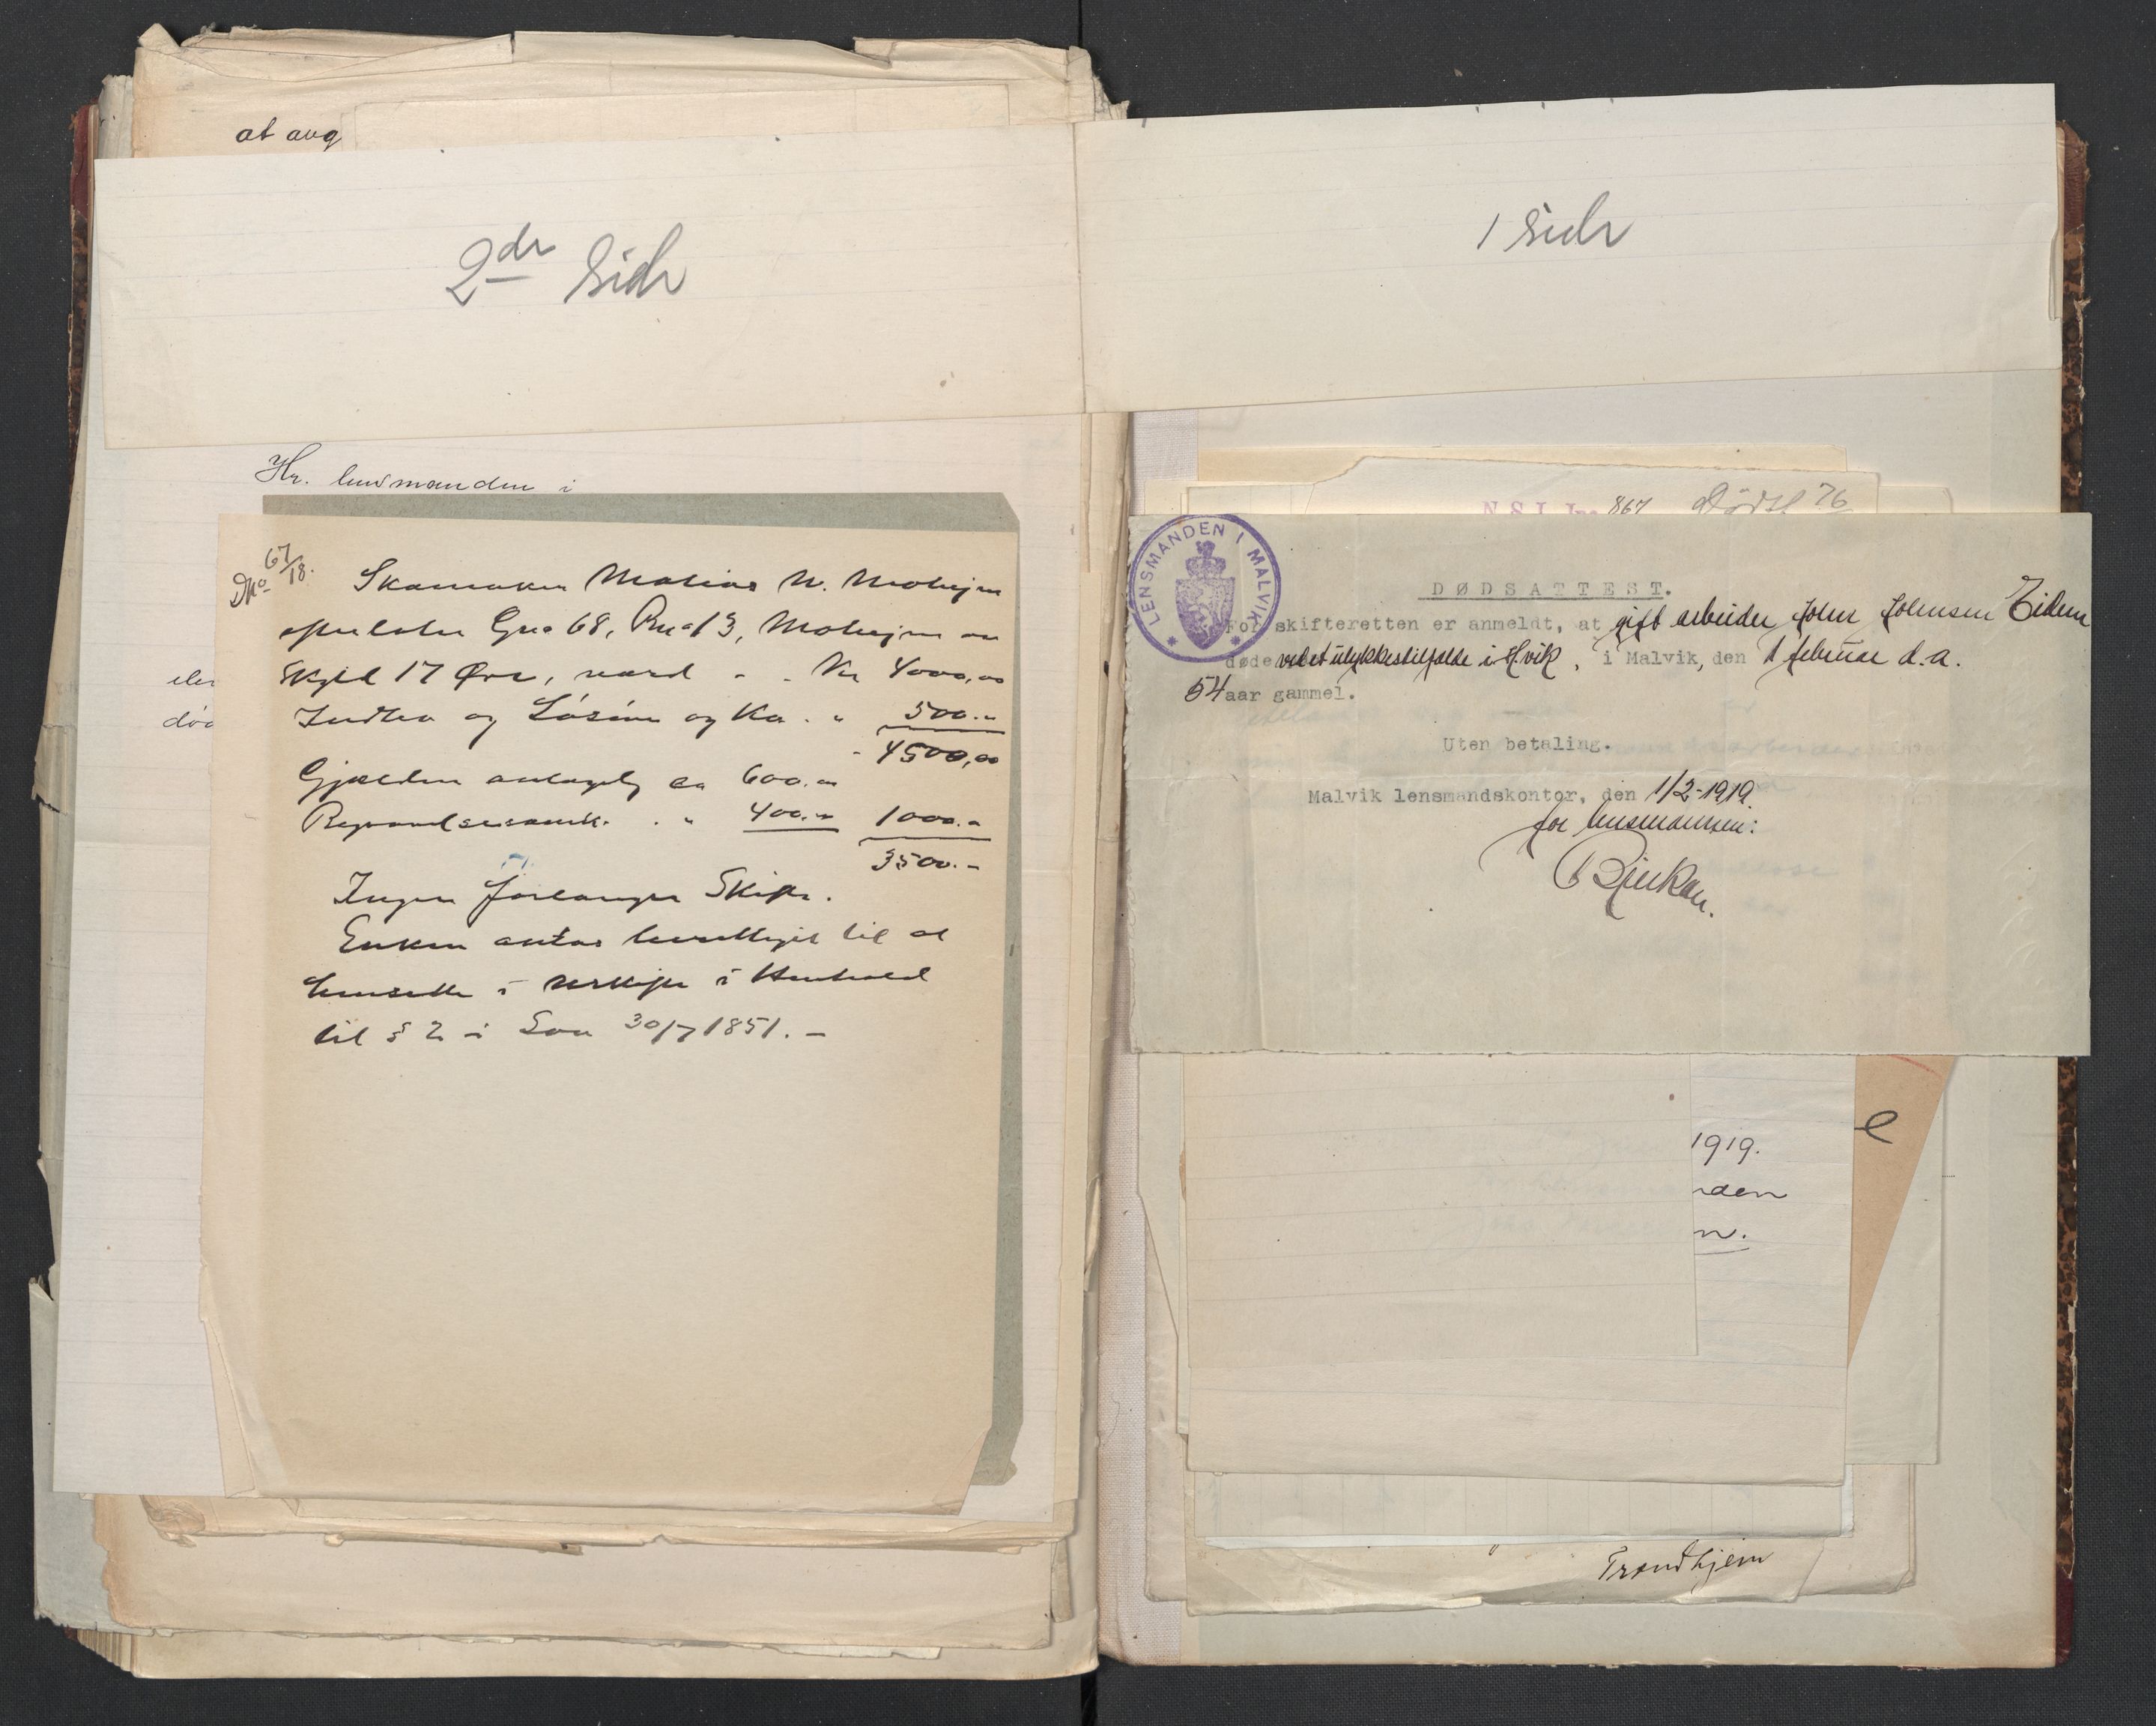 at avg
2de Side
1 Side
Hr. lensmanden i
Dno 67/18.
Skomaker Matias N. Mohejm
efterlater Gno 68, Bno 13, Mohejm av
Skyld 17 Øre, værd - - Kr 4000,00
Indbo og Løsøre og Ku . " 500.-
- 4500,00
Gjælden antagelig ca 600.00
Begravelsesomk. . " 400.- 1000.-
3500.-
Ingen forlanger Skifte.
Enken antas berettiget til at
hensitte i uskifte i Henhold
til § 2 i Lov 30/7 1851. -
N S L Jno 867 Dødsf 76
LENSMANDEN I MALVIK
DØDSATTEST.
For skifteretten er anmeldt, at gift arbeider John Johnsen Eidem
døde ved et ulykkestilfælde i Hvik, i Malvik, den 1 februar d.a.
54 aar gammel.
Uten betaling.
Malvik lensmandskontor, den 1/2-1919.
for lensmanden:
1919.
nden
n.
e
Trondhjem